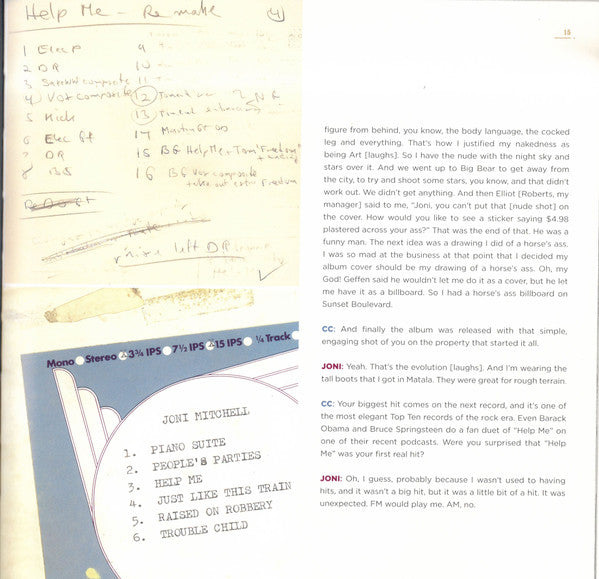 Help Me - Remake (4)
1 Elec P
2 DR
3 composite
4 Vox Composite
5 Kick
6 Elec Gt
7 DR
8
9
10
11
12
13
14
15 BG Help Me
16 BG Vox composite
take out extra Freedom
left DR
Mono Stereo 3¾ IPS 7½ IPS 15 IPS ¼ Track
JONI MITCHELL
1. PIANO SUITE
2. PEOPLE'S PARTIES
3. HELP ME
4. JUST LIKE THIS TRAIN
5. RAISED ON ROBBERY
6. TROUBLE CHILD
15
figure from behind, you know, the body language, the cocked
leg and everything. That's how I justified my nakedness as
being Art [laughs]. So I have the nude with the night sky and
stars over it. And we went up to Big Bear to get away from
the city, to try and shoot some stars, you know, and that didn't
work out. We didn't get anything. And then Elliot [Roberts, my
manager] said to me, "Joni, you can't put that [nude shot] on
the cover. How would you like to see a sticker saying $4.98
plastered across your ass?" That was the end of that. He was a
funny man. The next idea was a drawing I did of a horse's ass.
I was so mad at the business at that point that I decided my
album cover should be my drawing of a horse's ass. Oh, my
God! Geffen said he wouldn't let me do it as a cover, but he let
me have it as a billboard. So I had a horse's ass billboard on
Sunset Boulevard.
CC: And finally the album was released with that simple,
engaging shot of you on the property that started it all.
JONI: Yeah. That's the evolution [laughs]. And I'm wearing the
tall boots that I got in Matala. They were great for rough terrain.
CC: Your biggest hit comes on the next record, and it's one of
the most elegant Top Ten records of the rock era. Even Barack
Obama and Bruce Springsteen do a fan duet of "Help Me" on
one of their recent podcasts. Were you surprised that "Help
Me" was your first real hit?
JONI: Oh, I guess, probably because I wasn't used to having
hits, and it wasn't a big hit, but it was a little bit of a hit. It was
unexpected. FM would play me. AM, no.